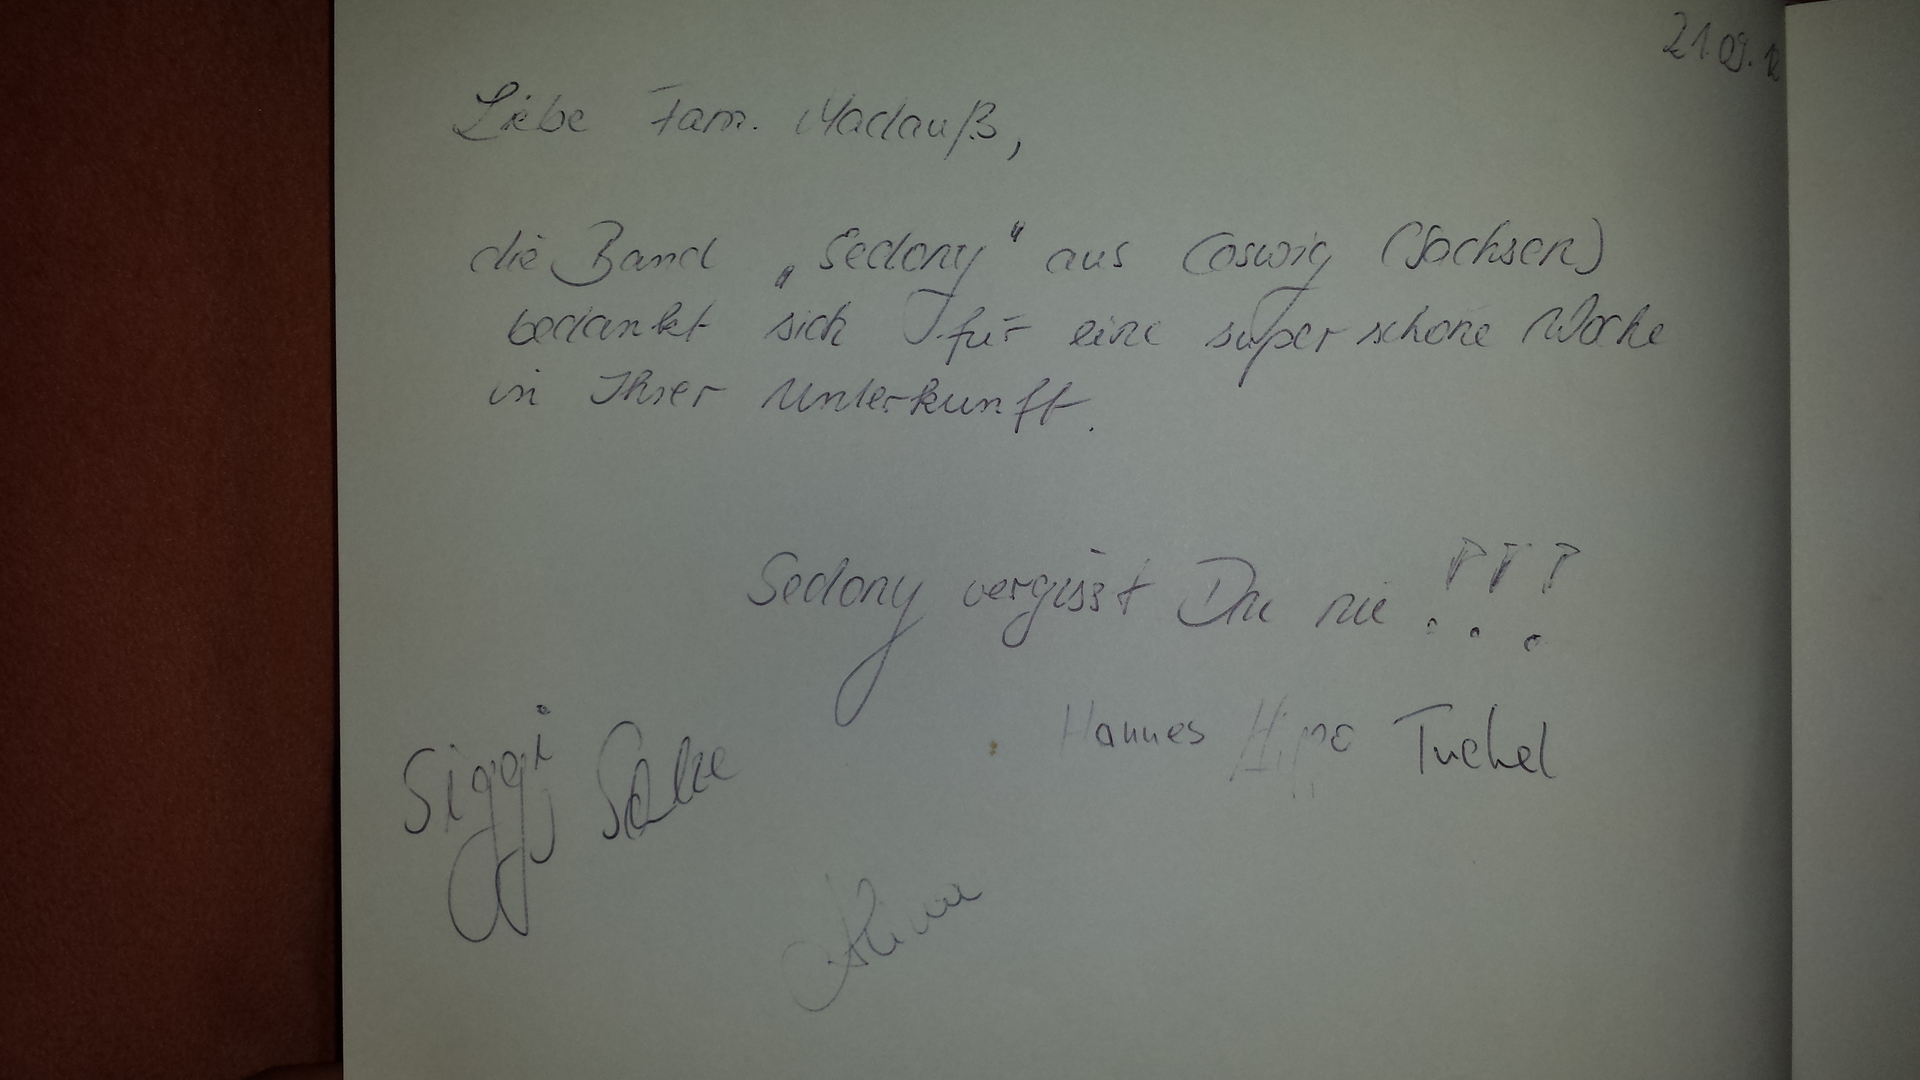 21.09.12
Liebe Fam. Madauß,
die Band „Sedony“ aus Coswig (Sachsen)
bedankt sich für eine super schöne Woche
in Ihrer Unterkunft.
Sedony vergisst Du nie !!!
Hannes Hippo Tuchel
Siggi